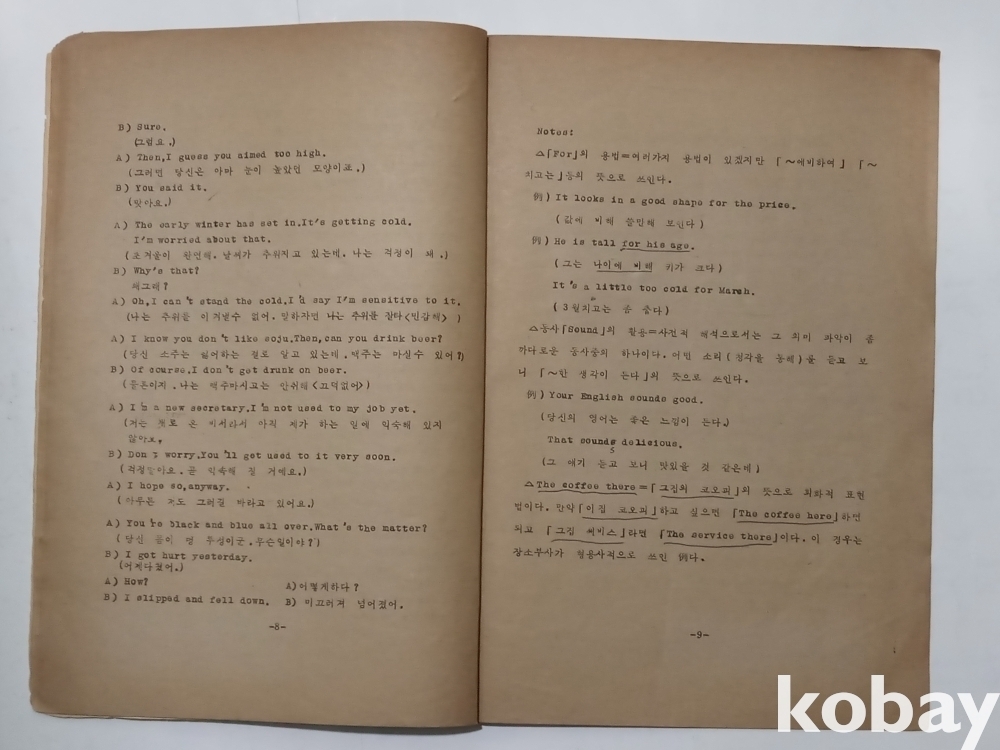 B) Sure.
(그럼요.)
A) Then,I guess you aimed too high.
(그러면 당신은 아마 눈이 높았던 모양이죠.)
B) You said it.
(맞아요.)
A) The early winter has set in.It's getting cold.
I'm worried about that.
(초겨울이 완연해. 날씨가 추워지고 있는데. 나는 걱정이 돼.)
B) Why's that?
왜그래?
A) Oh,I can't stand the cold.I'd say I'm sensitive to it.
(나는 추위를 이겨낼수 없어. 말하자면 나는 추위를 잘타<민감해> )
A) I know you don't like soju.Then,can you drink beer?
(당신 소주는 싫어하는 걸로 알고 있는데. 맥주는 마실수 있어?)
B) Of course.I don't get drunk on beer.
(물론이지. 나는 맥주마시고는 안취해<끄떡없어>)
A) I'm a new secretary.I'm not used to my job yet.
(저는 새로 온 비서라서 아직 제가 하는 일에 익숙해 있지
않아요.
B) Don't worry.You'll get used to it very soon.
(걱정말아요. 곧 익숙해 질 거예요.)
A) I hope so,anyway.
(아무튼 저도 그러길 바라고 있어요.)
A) You're black and blue all over.What's the matter?
(당신 몸이 멍 투성이군. 무슨일이야?)
B) I got hurt yesterday.
(어제다쳤어.)
A) How? A)어떻게하다?
B) I slipped and fell down. B) 미끄러져 넘어졌어.
-8-
Notes:
△「For」의 용법=여러가지 용법이 있겠지만 「~에비하여」 「~
치고는」등의 뜻으로 쓰인다.
例) It looks in a good shape for the price.
(값에 비해 쓸만해 보인다)
例) He is tall for his age.
(그는 나이에 비해 키가 크다)
It's a little too cold for March.
(3월치고는 좀 춥다)
△동사「Sound」의 활용=사전적 해석으로서는 그 의미 파악이 좀
까다로운 동사중의 하나이다. 어떤 소리(청각을 통해)를 듣고 보
니 「~한 생각이 든다」의 뜻으로 쓰인다.
例) Your English sounds good.
(당신의 영어는 좋은 느낌이 든다.)
That sounds delicious.
(그 얘기 듣고 보니 맛있을 것 같은데)
△The coffee there=「그집의 코오피」의 뜻으로 회화적 표현
법이다. 만약「이집 코오피」하고 싶으면 「The coffee here」하면
되고 「그집 써비스」라면 「The service there」이다. 이 경우는
장소부사가 형용사적으로 쓰인 例다.
-9-
kobay